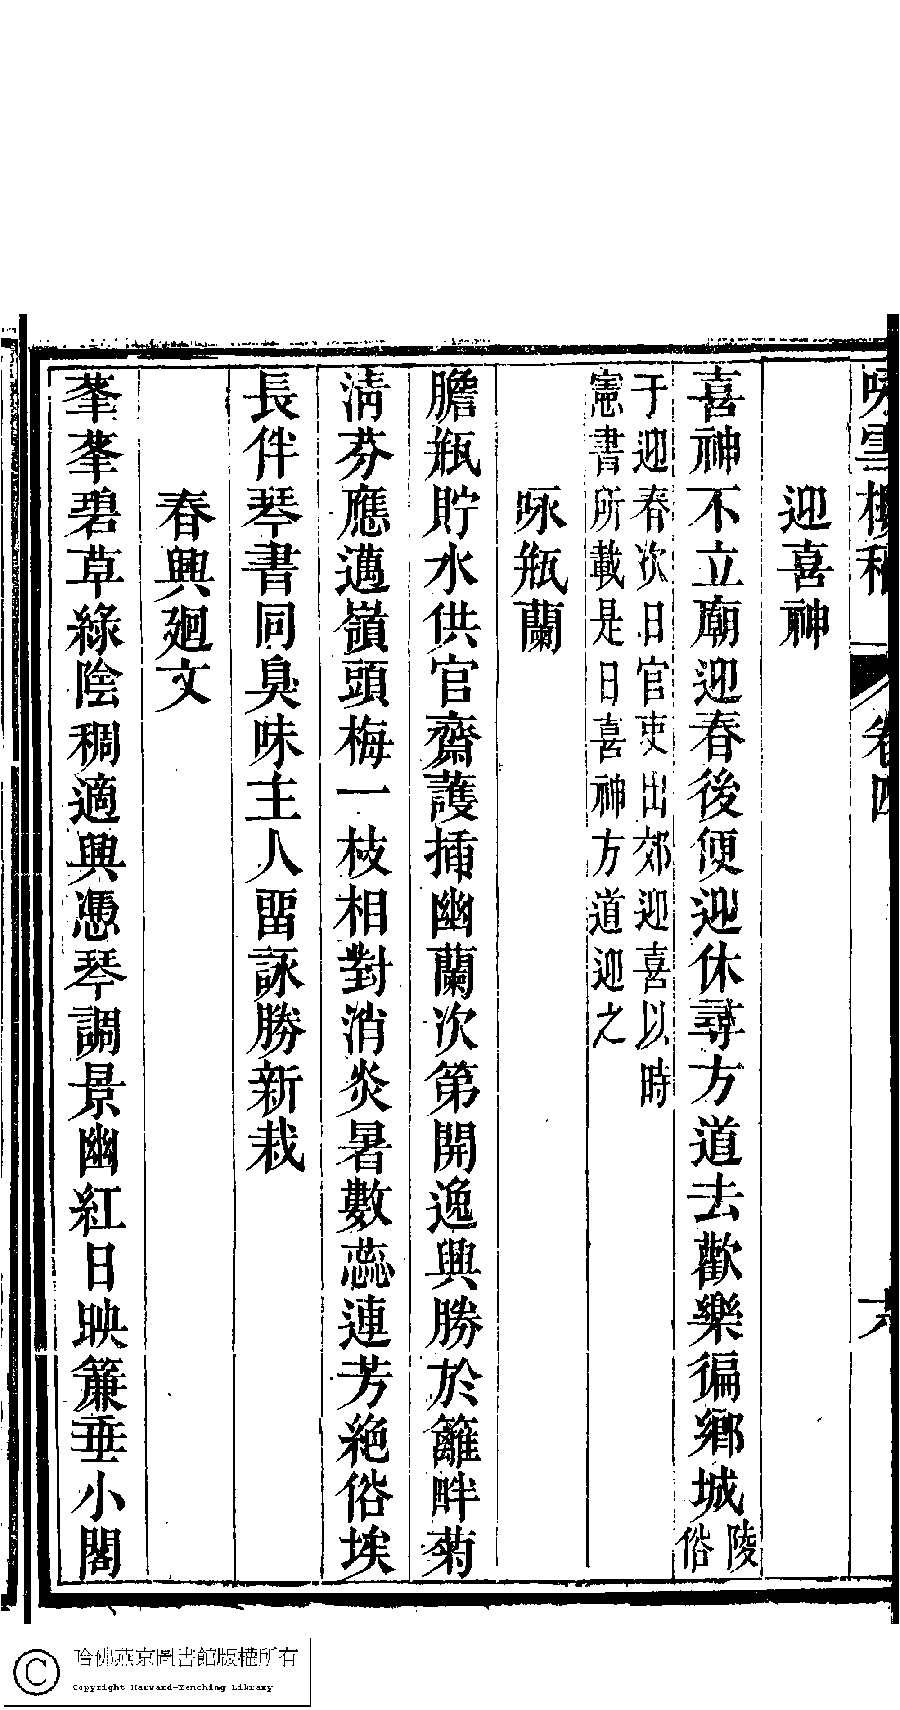 咏雪樓稿　卷四
迎喜神
喜神不立廟迎春後便迎休尋方道去歡樂徧鄉城陵俗
于迎春次日官吏出郊迎喜以時
憲書所載是日喜神方道迎之
咏瓶蘭
膽瓶貯水供官齋護插幽蘭次第開逸興勝於籬畔菊
淸芬應邁嶺頭梅一枝相對消炎暑數蕊連芳絕俗埃
長伴琴書同臭味主人留詠勝新栽
春興廻文
莑莑碧草綠陰稠適興憑琴調景幽紅日映簾垂小閣
哈佛燕京圖書館版權所有
Copyright Harvard-Yenching Library